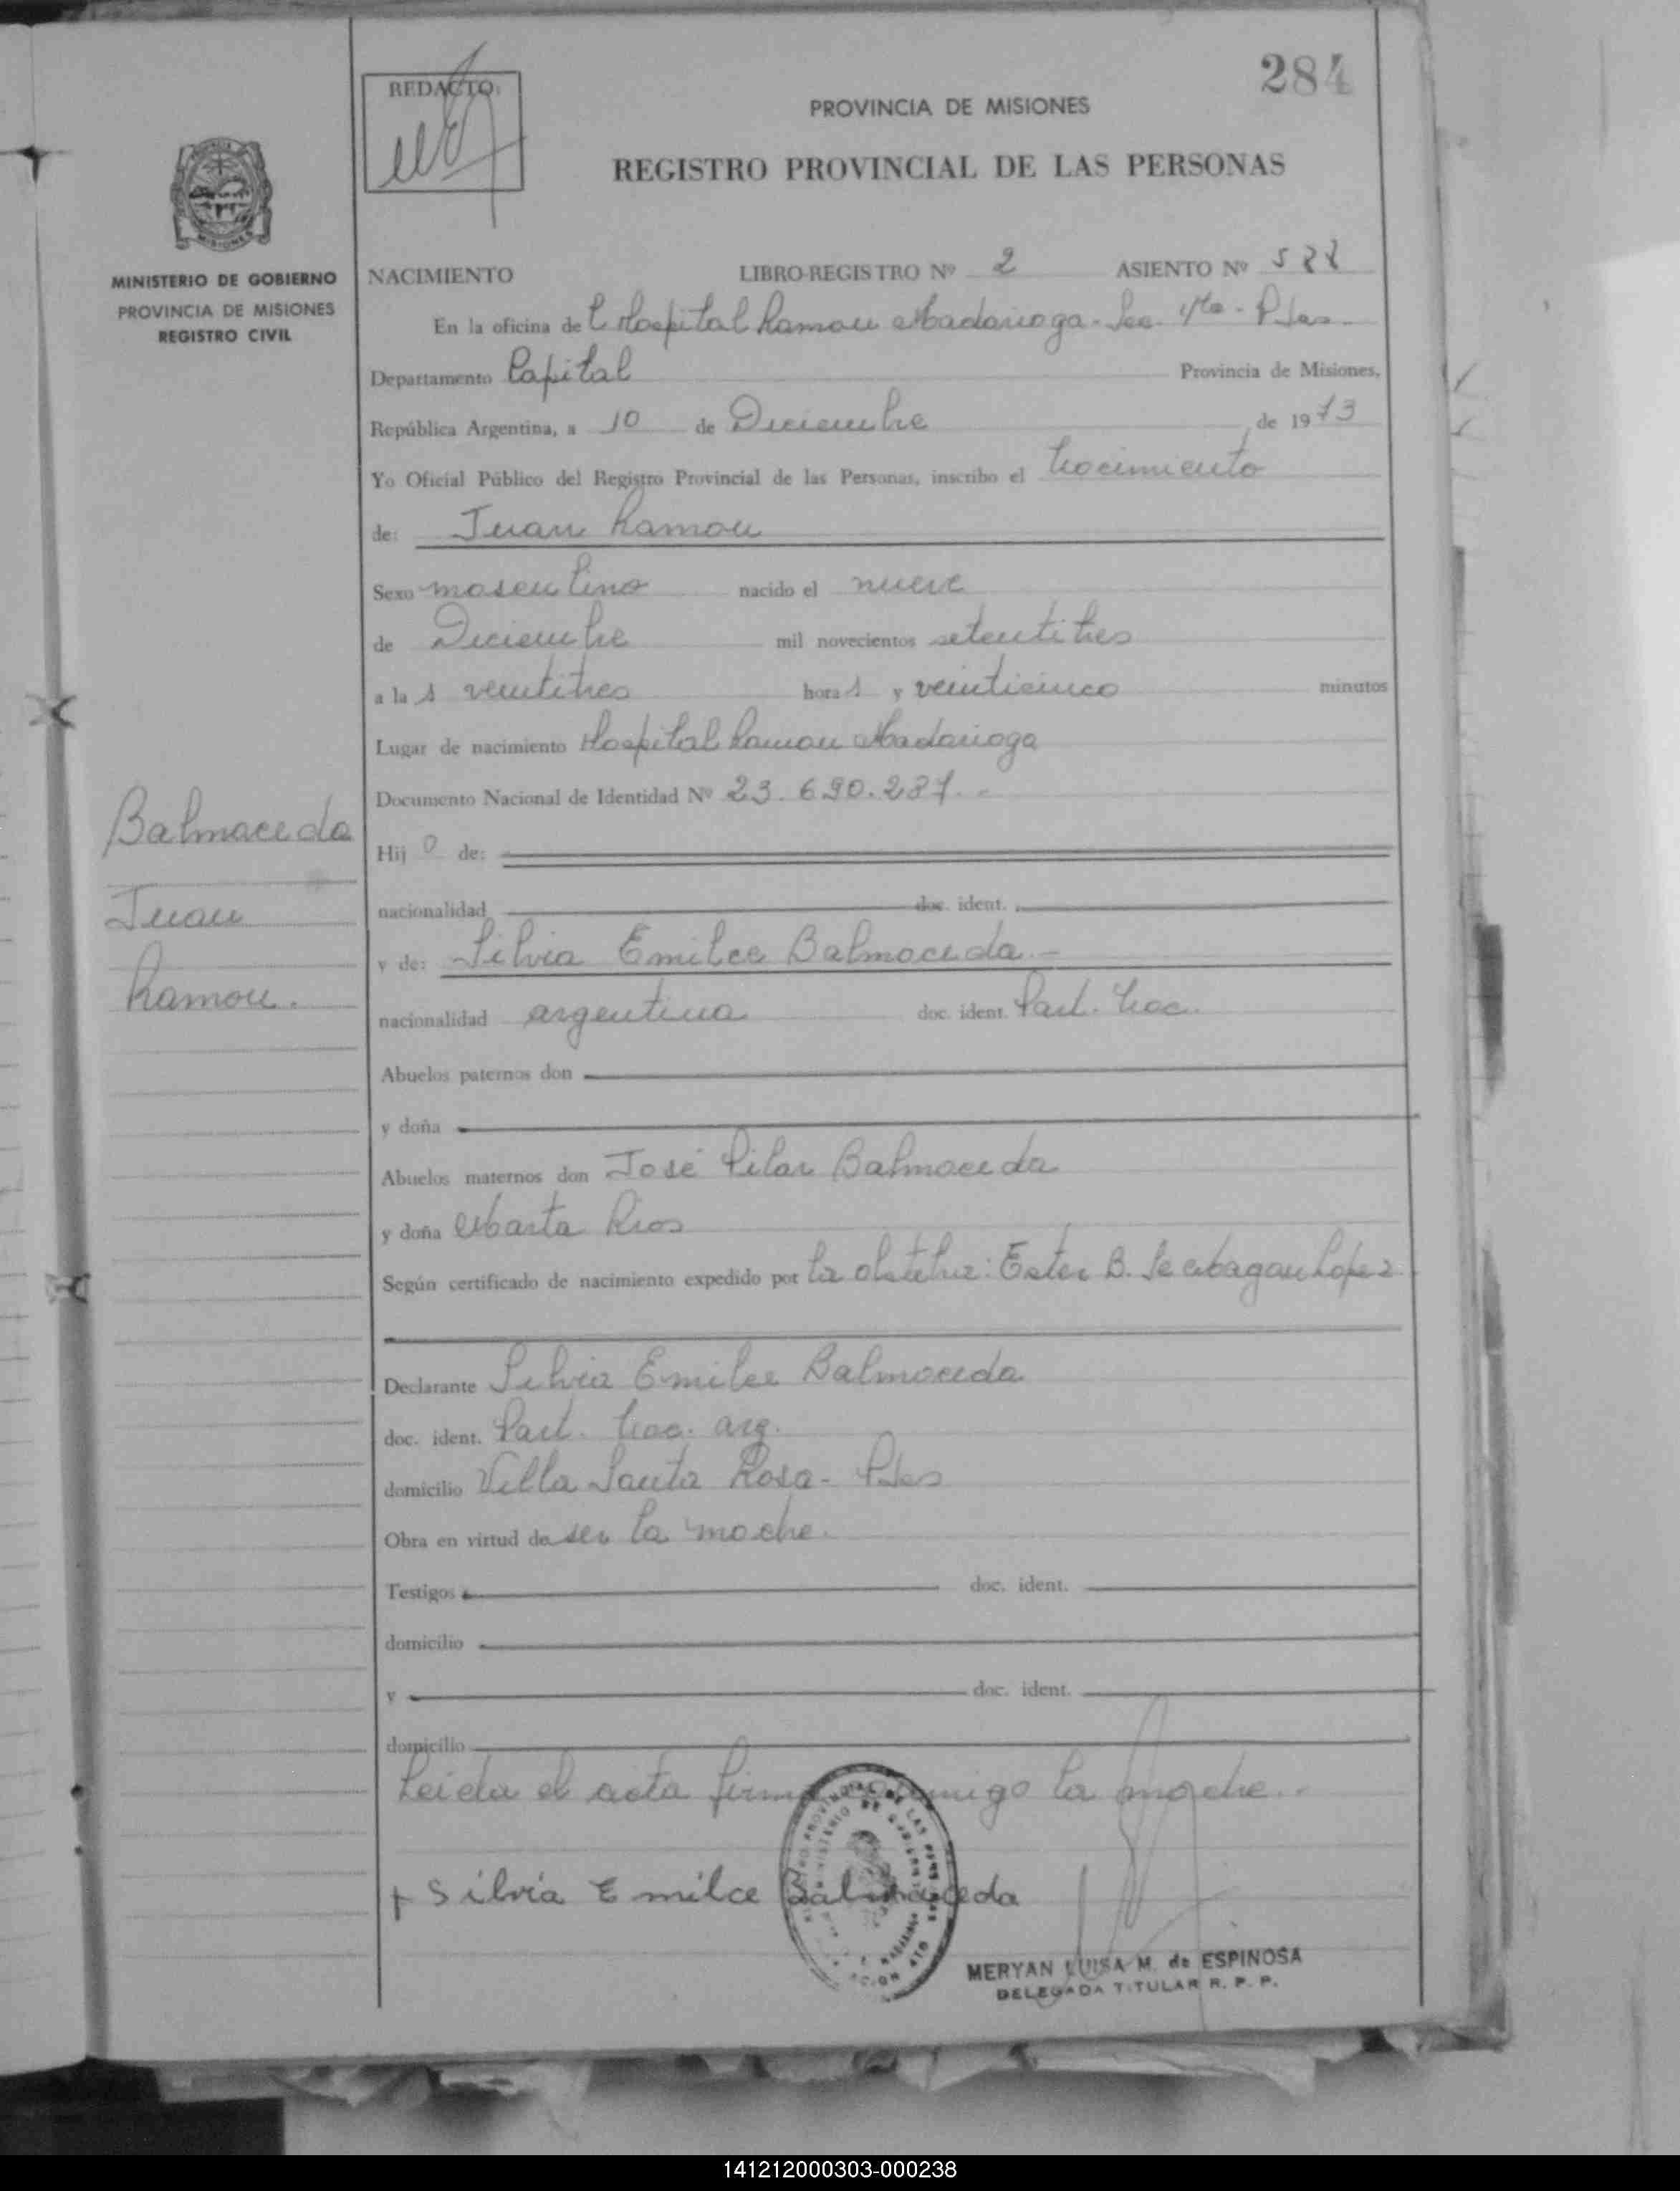 284
REDACTO:
PROVINCIA DE MISIONES
REGISTRO PROVINCIAL DE LAS PERSONAS
MINISTERIO DE GOBIERNO
PROVINCIA DE MISIONES
REGISTRO CIVIL
NACIMIENTO LIBRO-REGISTRO Nº 2 ASIENTO Nº
En la oficina de Hospital Ramon Madariaga - Sec. 4ta - Pdas
Departamento Capital Provincia de Misiones,
República Argentina, a 10 de Diciembre de 1973
Yo Oficial Público del Registro Provincial de las Personas, inscribo el Nacimiento
de: Juan Ramon
Sexo masculino nacido el nueve
de Diciembre mil novecientos setentitres
a la s veintitres hora s y veinticinco minutos
Lugar de nacimiento Hospital Ramon Madariaga
Documento Nacional de Identidad Nº 23.690.287.-
Balmaceda
Juan
Ramon.
Hij o de:
nacionalidad doc. ident.
y de: Silvia Emilce Balmaceda.-
nacionalidad argentina doc. ident. Part. Nac.
Abuelos paternos don
y doña
Abuelos maternos don José Pilar Balmaceda
y doña Marta Rios
Según certificado de nacimiento expedido por la obstetra: Ester B. de Lopez
Declarante Silvia Emilce Balmaceda
doc. ident. Part. Nac. arg.
domicilio Villa Santa Rosa - Pdas
Obra en virtud de ser la madre.
Testigos doc. ident.
domicilio
y doc. ident.
domicilio
Leida el acta firma conmigo la madre.-
+ Silvia Emilce Balmaceda
MERYAN LUISA M. de ESPINOSA
DELEGADA TITULAR R. P. P.
141212000303-000238